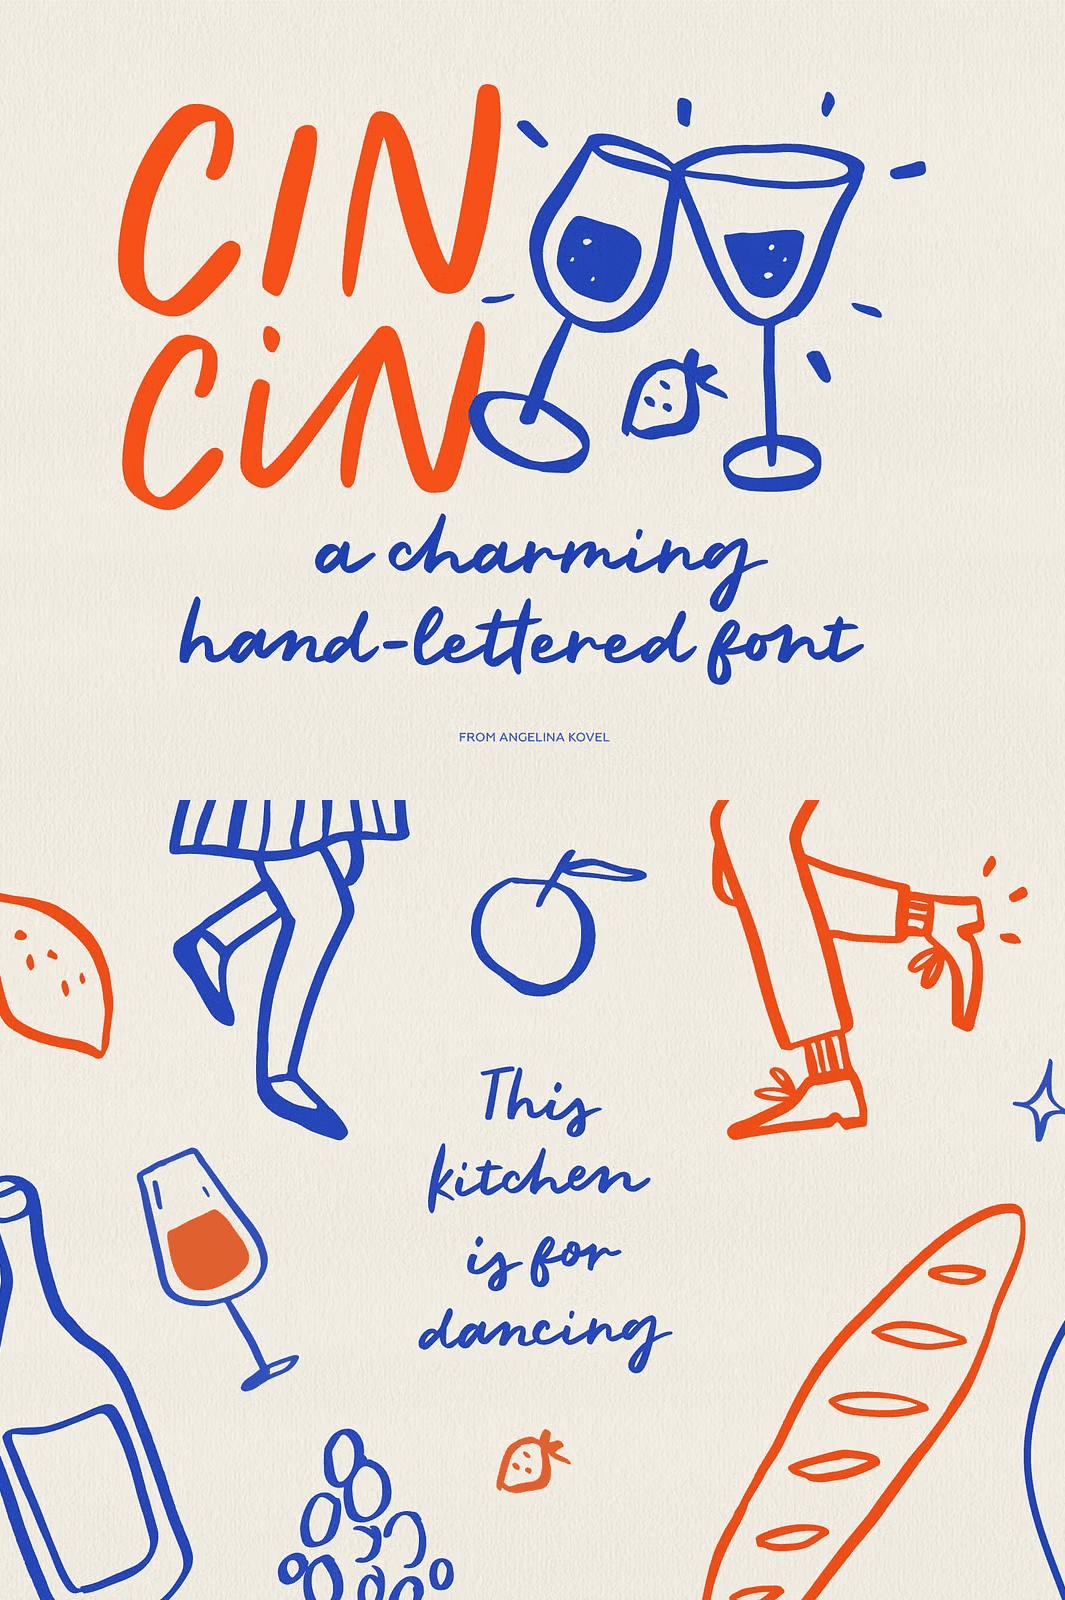 CIN
CiN
a charming
hand-lettered font
FROM ANGELINA KOVEL
This
kitchen
is for
dancing